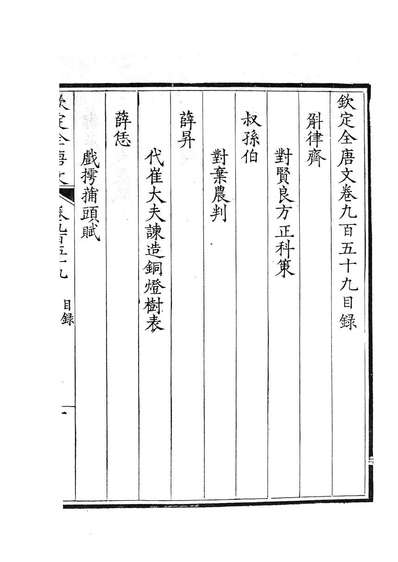 欽定全唐文卷九百五十九目録
斛律齊
對賢良方正科策
叔孫伯
對棄農判
薛昇
代崔大夫諫造銅燈樹表
薛恁
戲摴蒱頭賦
欽定全唐文 卷九百五十九 目録 一